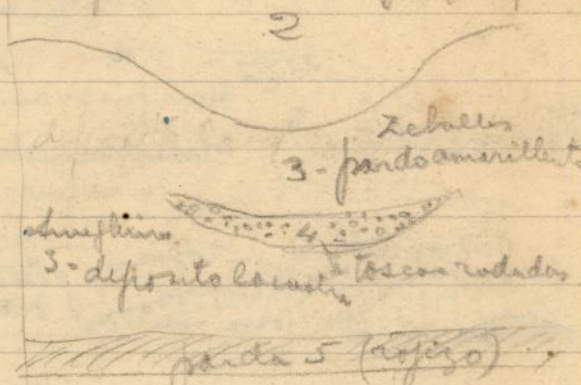 2
Zeballos
3 - pardo amarillento
4
3 - deposito lacustre
toscas rodadas
parda 5 (rojizo)